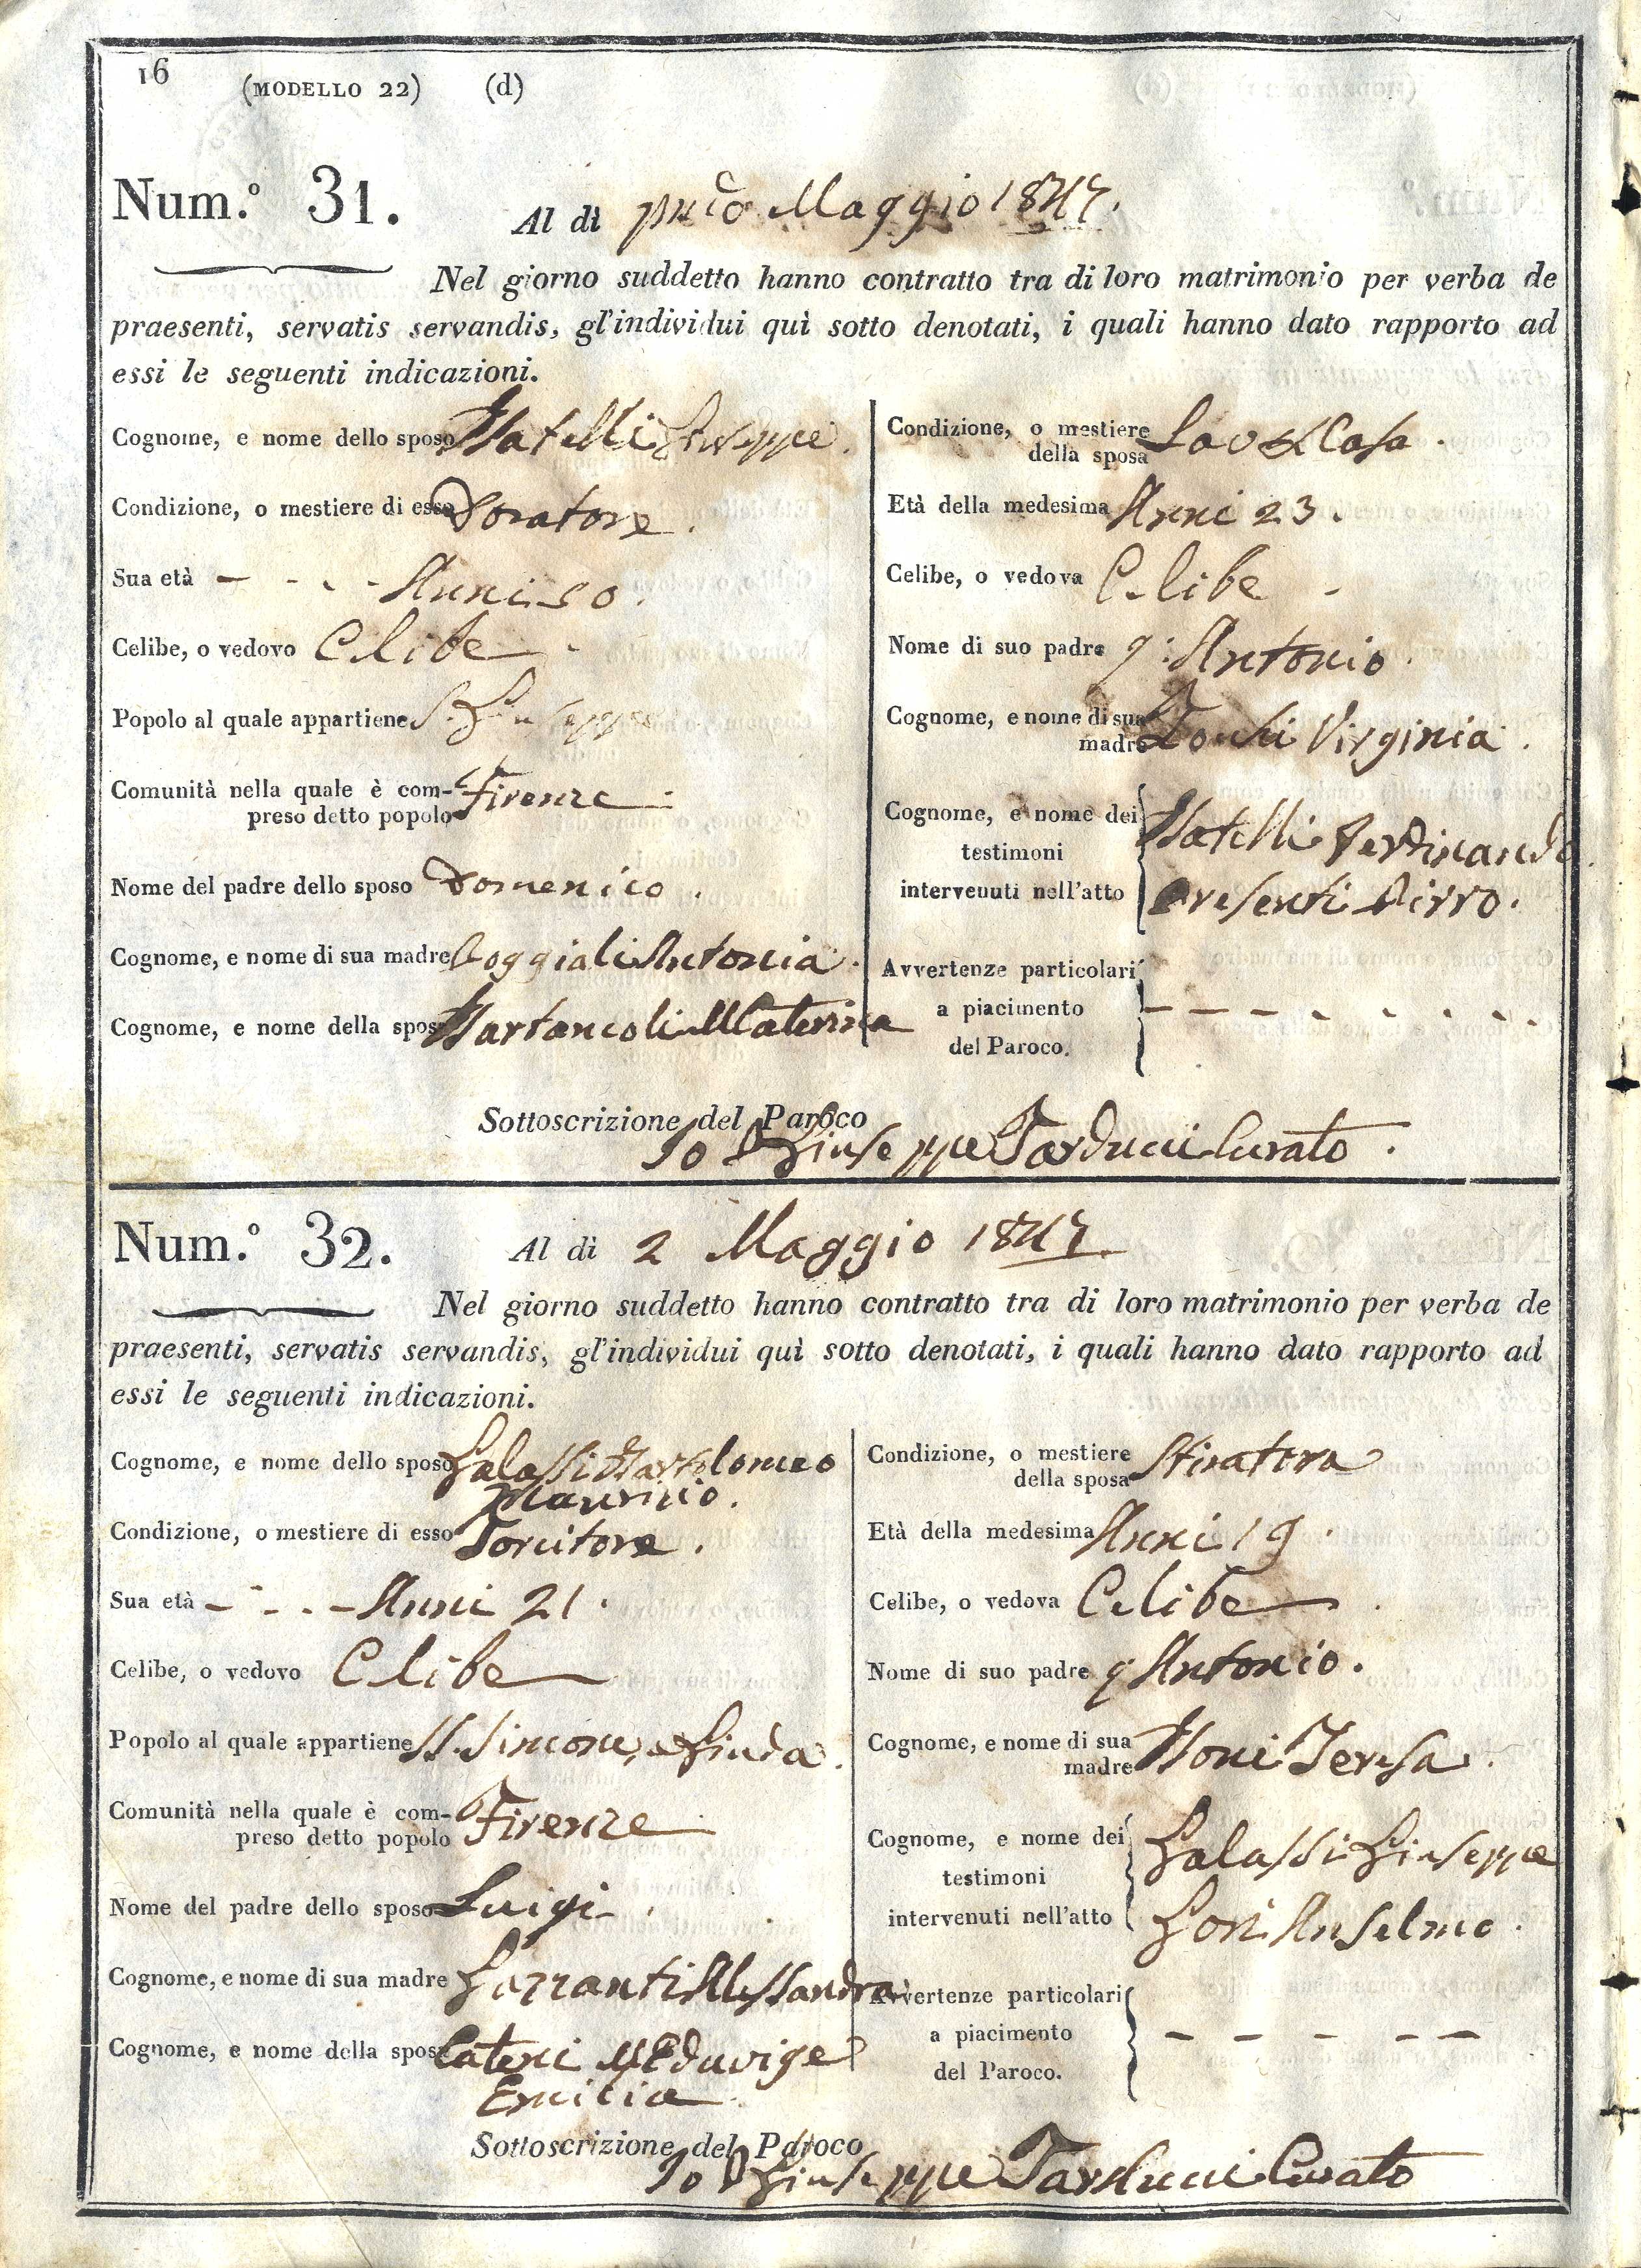 16 (MODELLO 22) (d)
Num.° 31. Al dì Maggio 1847.
Nel giorno suddetto hanno contratto tra di loro matrimonio per verba de
praesenti, servatis servandis, gl'individui quì sotto denotati, i quali hanno dato rapporto ad
essi le seguenti indicazioni.
Cognome, e nome dello sposo Giuseppe.
Condizione, o mestiere di esso Doratore.
Sua età - - - - Anni
Celibe, o vedovo Celibe
Popolo al quale appartiene S. Giuseppe
Comunità nella quale è com-
preso detto popolo Firenze
Nome del padre dello sposo Domenico.
Cognome, e nome di sua madre Poggiali Antonia.
Cognome, e nome della sposa Caterina
Condizione, o mestiere
della sposa Casa.
Età della medesima Anni 23.
Celibe, o vedova Celibe
Nome di suo padre q: Antonio.
Cognome, e nome di sua
madre Virginia.
Cognome, e nome dei Ferdinando
testimoni
intervenuti nell'atto Pirro.
Avvertenze particolari
a piacimento - - - - - - - - -
del Paroco.
Sottoscrizione del Paroco
Io D Giuseppe Tarducci Curato.
Num.° 32. Al dì 2 Maggio 1847
Nel giorno suddetto hanno contratto tra di loro matrimonio per verba de
praesenti, servatis servandis, gl'individui quì sotto denotati, i quali hanno dato rapporto ad
essi le seguenti indicazioni.
Cognome, e nome dello sposo Galassi Bartolomeo
Maurizio.
Condizione, o mestiere di esso Torcitore.
Sua età - - - - Anni 21.
Celibe, o vedovo Celibe
Popolo al quale appartiene SS. Simone, e Giuda.
Comunità nella quale è com-
preso detto popolo Firenze
Nome del padre dello sposo Luigi.
Cognome, e nome di sua madre Alessandra
Cognome, e nome della sposa Cateni Ma Eduvige
Emilia
Condizione, o mestiere
della sposa Stiratora
Età della medesima Anni 19.
Celibe, o vedova Celibe
Nome di suo padre q Antonio.
Cognome, e nome di sua
madre Teresa.
Cognome, e nome dei Galassi Giuseppe
testimoni
intervenuti nell'atto Gori Anselmo.
Avvertenze particolari
a piacimento - - - - -
del Paroco.
Sottoscrizione del Paroco
Io D Giuseppe Tarducci Curato